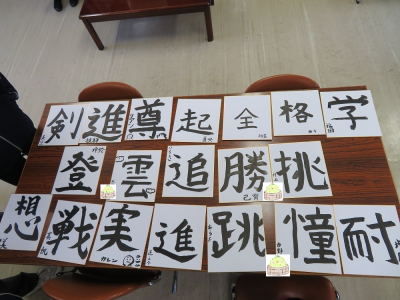 剣 進 尊 起 全 格 学
登 雲 追 勝 挑
想 戦 実 進 跳 憧 耐
カレン